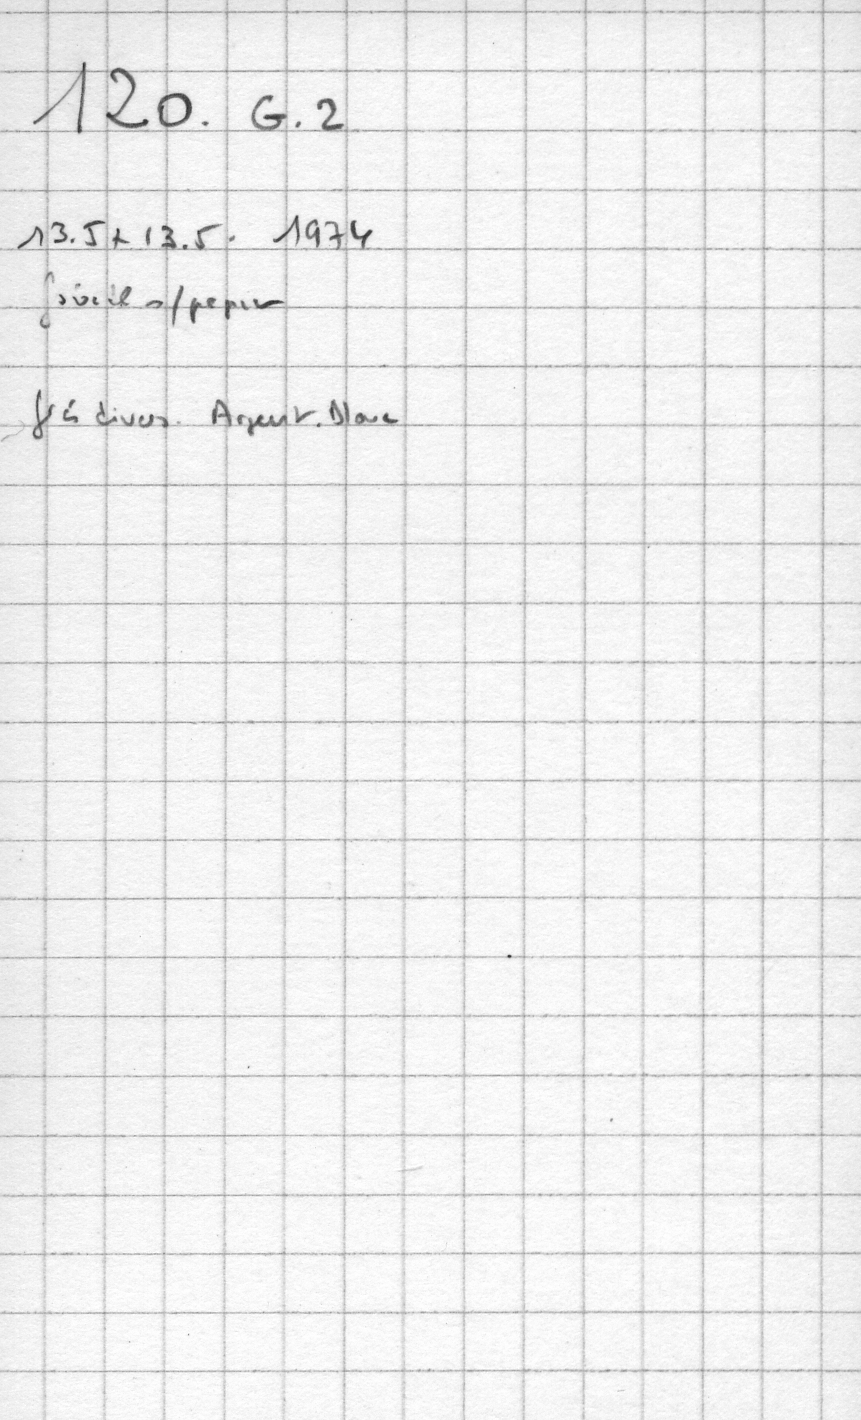 120. G.2
13.5 x 13.5. 1974
s/papier
gris divers. Argent. Blanc